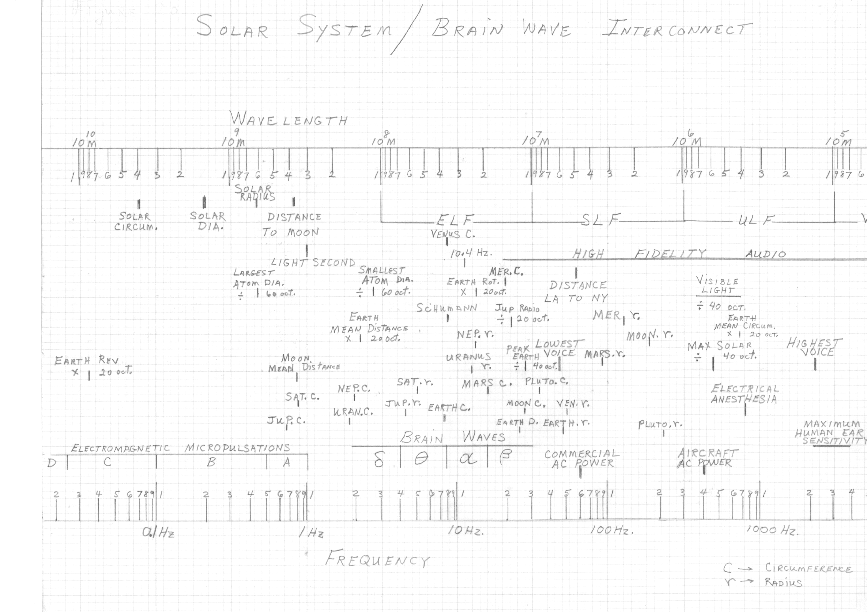 SOLAR SYSTEM / BRAIN WAVE INTERCONNECT
WAVELENGTH
10^10 M 10^9 M 10^8 M 10^7 M 10^6 M 10^5 M
1 9 8 7 6 5 4 3 2 1 9 8 7 6 5 4 3 2 1 9 8 7 6 5 4 3 2 1 9 8 7 6 5 4 3 2 1 9 8 7 6 5 4 3 2 1 9 8 7
SOLAR
RADIUS
SOLAR
CIRCUM.
SOLAR
DIA.
DISTANCE
TO MOON
ELF SLF ULF
VENUS C.
LIGHT SECOND
10.4 Hz.
HIGH FIDELITY AUDIO
LARGEST
ATOM DIA.
÷ | 60 oct.
SMALLEST
ATOM DIA.
÷ | 60 oct.
MER. C.
EARTH ROT.
X | 20 oct.
DISTANCE
LA TO NY
VISIBLE
LIGHT
÷ 40 OCT.
SCHUMANN
JUP RADIO
÷ | 20 oct.
MER. r.
EARTH
MEAN DISTANCE
X | 20 oct.
EARTH
MEAN CIRCUM.
X | 20 oct.
NEP. r.
MOON. r.
EARTH REV
X | 20 oct.
MOON
MEAN DISTANCE
URANUS
r.
PEAK
EARTH
÷ | 40 oct.
LOWEST
VOICE
MARS. r.
MAX SOLAR
÷ | 40 oct.
HIGHEST
VOICE
SAT. C.
NEP. C.
SAT. r.
MARS C.
PLUTO. C.
ELECTRICAL
ANESTHESIA
JUP. C.
URAN. C.
JUP. r.
EARTH C.
MOON C.
VEN. r.
EARTH D.
EARTH. r.
PLUTO. r.
MAXIMUM
HUMAN EAR
SENSITIVITY
ELECTROMAGNETIC MICROPULSATIONS
D C B A
BRAIN WAVES
δ θ α β
COMMERCIAL
AC POWER
AIRCRAFT
AC POWER
2 3 4 5 6 7 8 9 1 2 3 4 5 6 7 8 9 1 2 3 4 5 6 7 8 9 1 2 3 4 5 6 7 8 9 1 2 3 4 5 6 7 8 9 1 2 3 4
0.1 Hz 1 Hz 10 Hz. 100 Hz. 1000 Hz.
FREQUENCY
C → CIRCUMFERENCE
r → RADIUS